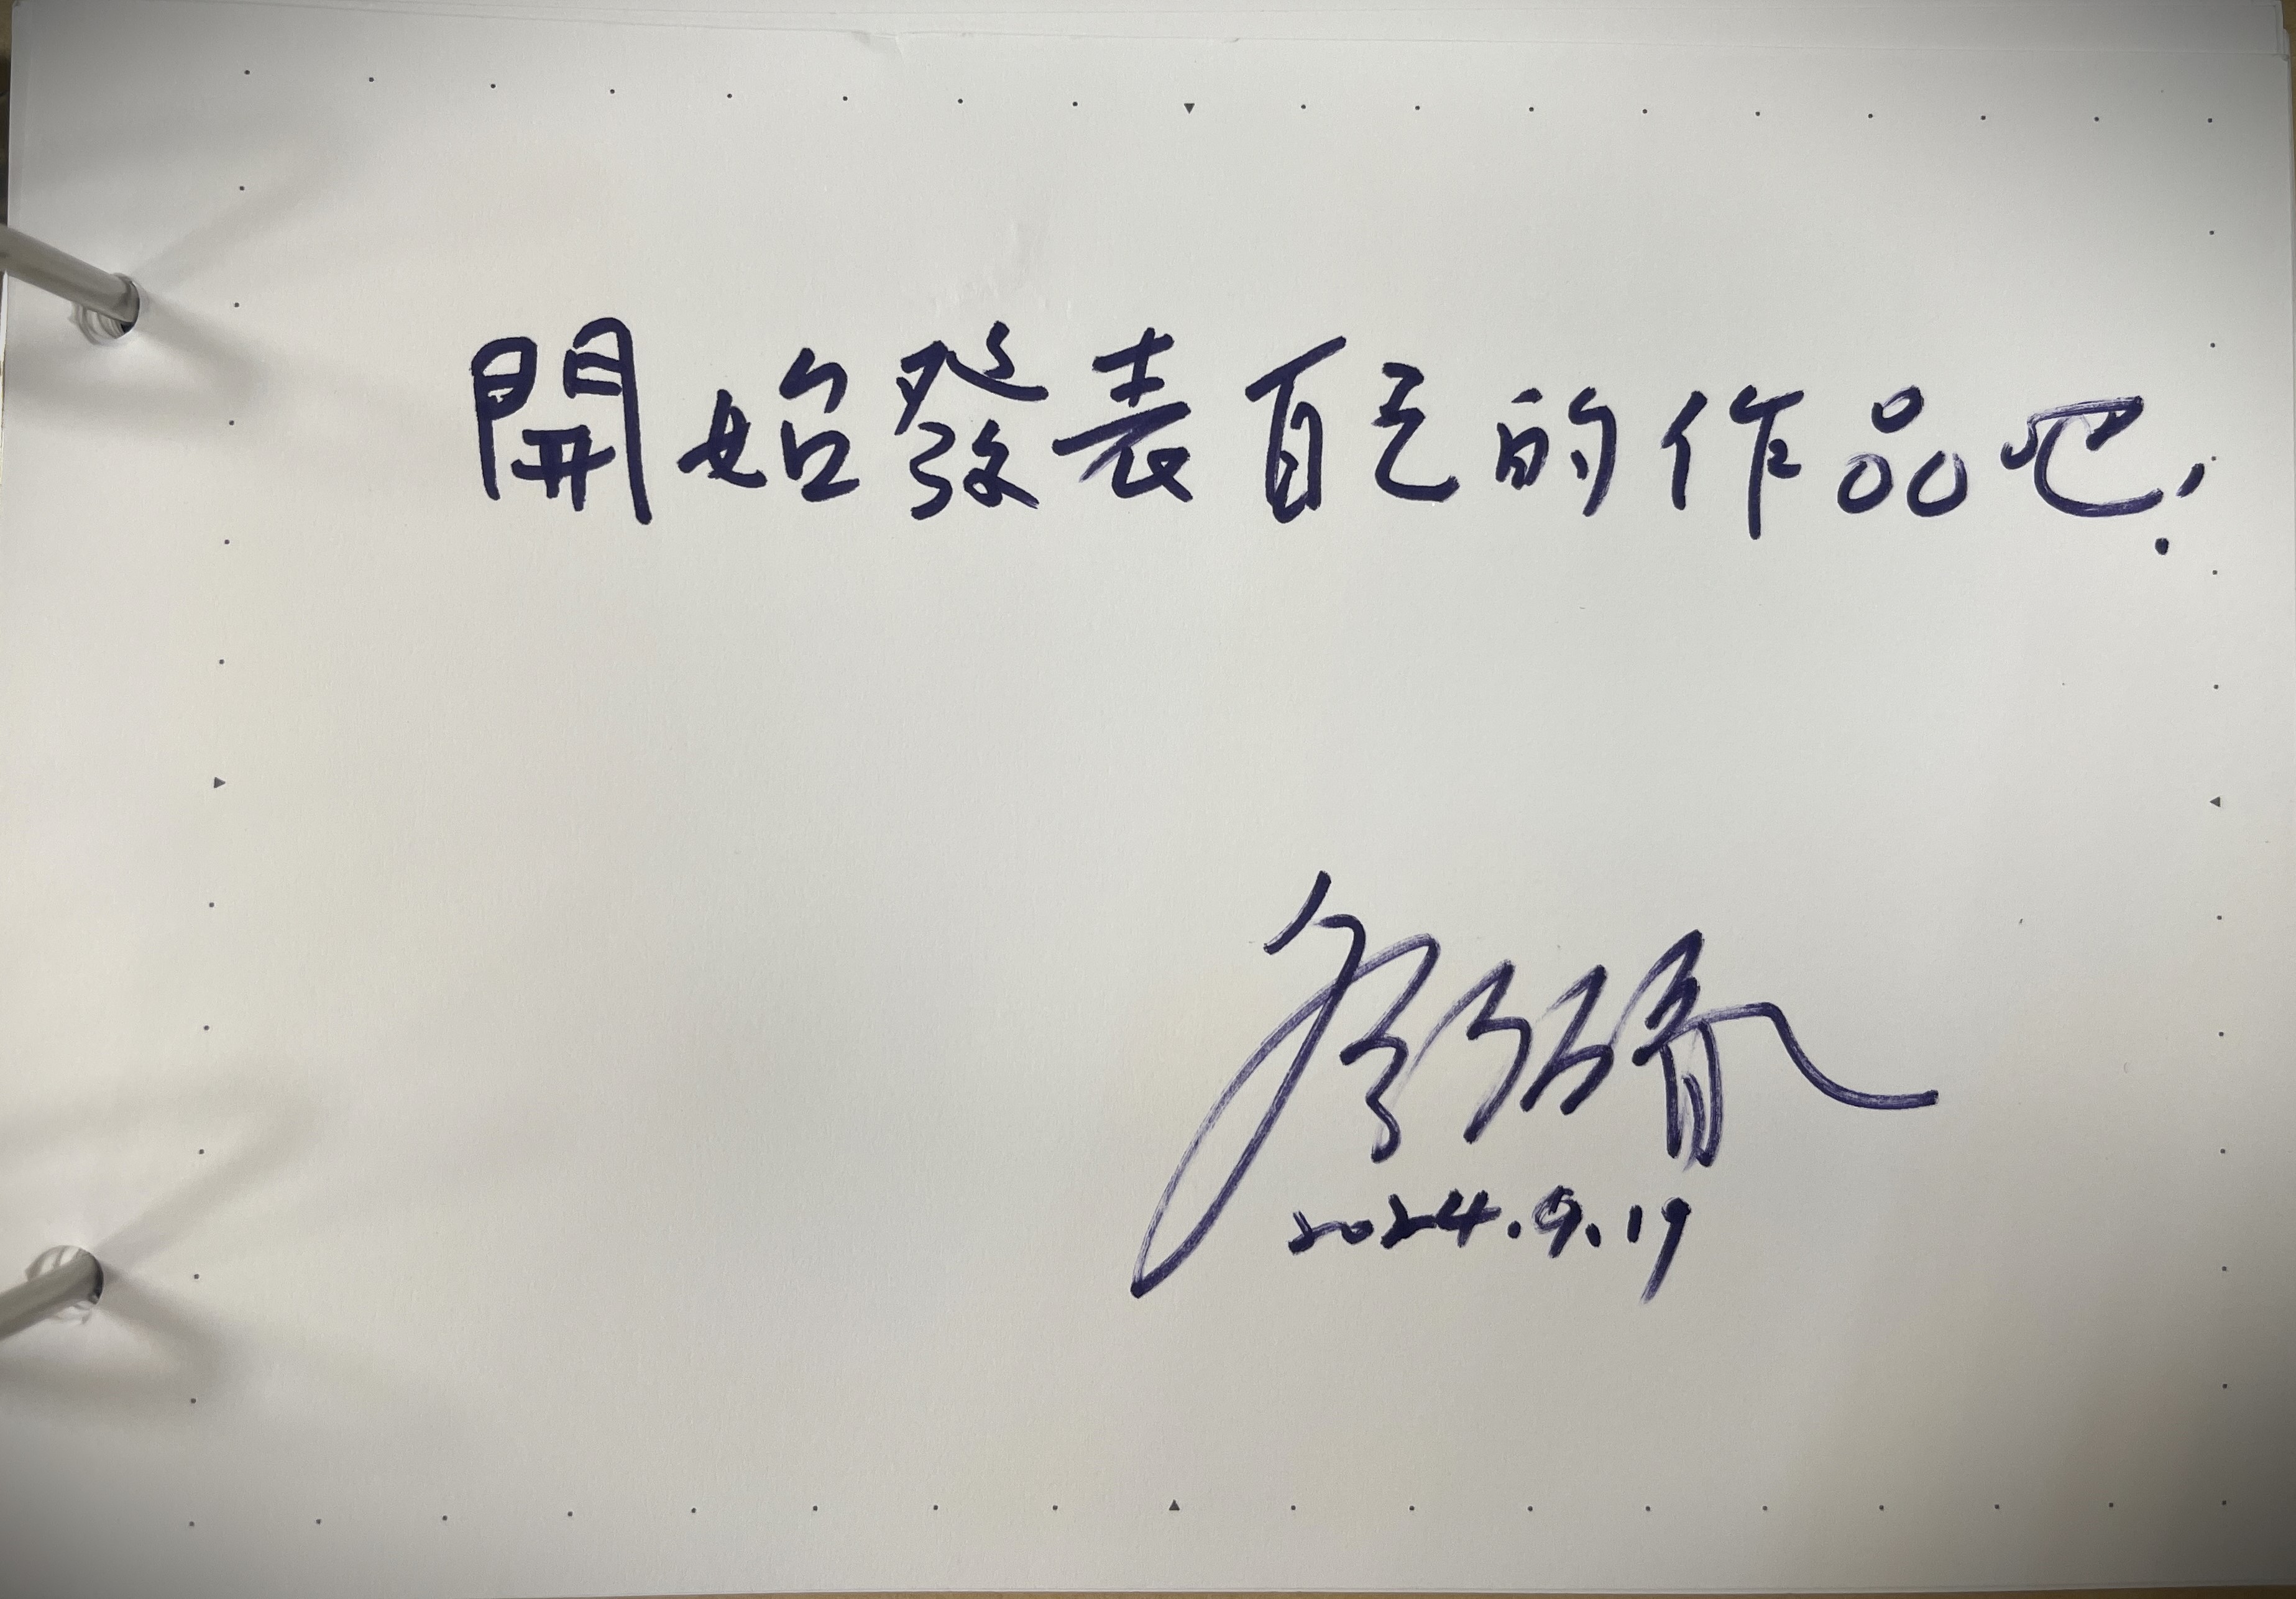 開始發表自己的作品吧!
2024.9.19